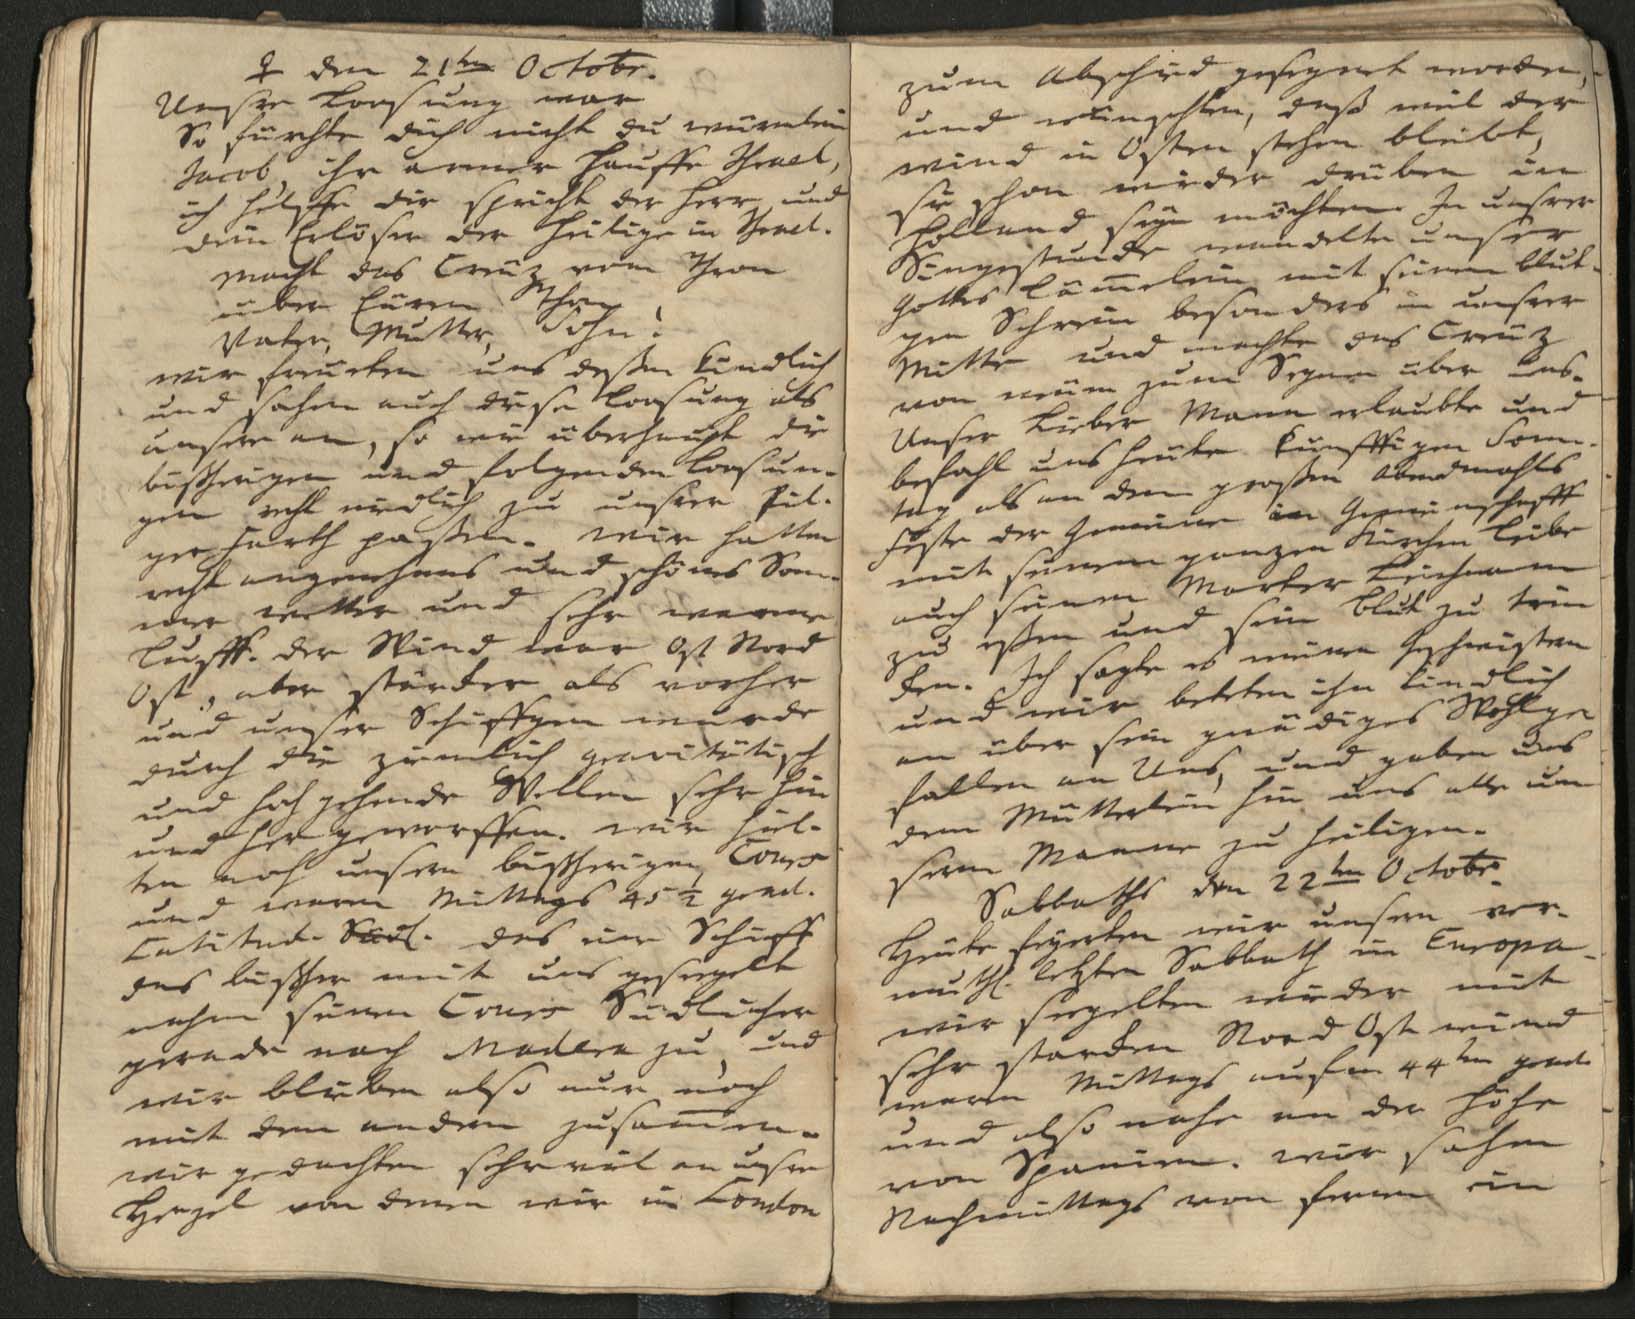 ♀ den 21ten Octobr.
Unsre Loosung war
So fürchte dich nicht du würmlein
Jacob, ihr armer Hauffe Israel,
ich helffe dir spricht der Herr und
dein Erlöser der Heilige in Israel.
Macht das Creuz vom Thron
über Euren Thon
Vater, Mutter, Sohn!
wir freueten uns deßen kindlich
und sahen auch diese Loosung als
unsere an, so wie überhaupt die
bißherigen und folgenden Loosun-
gen recht niedlich zu unsrer Pil-
ger Farth paßen. Wir hatten
recht angenehmes und schönes Som-
mer wetter und sehr warme
Lufft. der Wind war Ost Nord
Ost, aber stärcker als vorher
und unser Schiffgen wurde
durch die ziemlich gravitätisch
und hoch gehende Wellen sehr hin
und her geworffen. wir hiel-
ten noch unsern bißherigen Cours
und waren Mittags 45 1/2 grad.
Latitud. das eine Schiff
das bißher mit uns gesegelt
nahm seinen Cours Südlicher
gerade nach Madera zu, und
wir blieben also nur noch
mit dem andern zusammen.
wir gedachten sehr viel an unsre
von denen wir in London
zum Abschied gesegnet worden,
und wünschten, daß weil der
wind in Osten stehen bleibt,
sie schon wieder drüben in
Holland seyn möchten. In unsrer
Singestunde wandelte unser
Gottes Lämmelein mit seinem bluti-
gen Schrein besonders in unsrer
Mitte und machte das Creuz
von neuem zum Segnen über uns.
Unser Lieber Mann erlaubte und
befahl uns heute künfftigen Sonn-
tag als an dem großen Abendmahls
Feste der Gemeine in Gemeinschafft
mit seinem ganzen Kirchen Leibe
auch seinen Marter Leichnam
zu eßen und sein Blut zu trin
cken. Ich sagte es meinen Geschwistern
und wir beteten ihn kindlich
an über sein gnädiges Wohlge
fallen an Uns, und gaben uns
dem Mütterlein hin uns alle un
serm Manne zu heiligen.
Sabbaths den 22ten Octobr.
Heute feyerten wir unsern ver-
muthl. letzten Sabbath in Europa.
wir segelten wieder mit
sehr starcken Nord Ost wind
waren Mittags aufm 44ten grad
und also nahe an der Höhe
von Spanien. wir sahen
Nachmittags von ferne ein